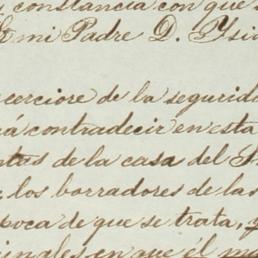 constancia con que
mi Padre D. Ysid
cerciore de la segurida
á contradecir en esta
ntas de la casa del S.
los borradores de las
poca de que se trata, y
cinales en que él